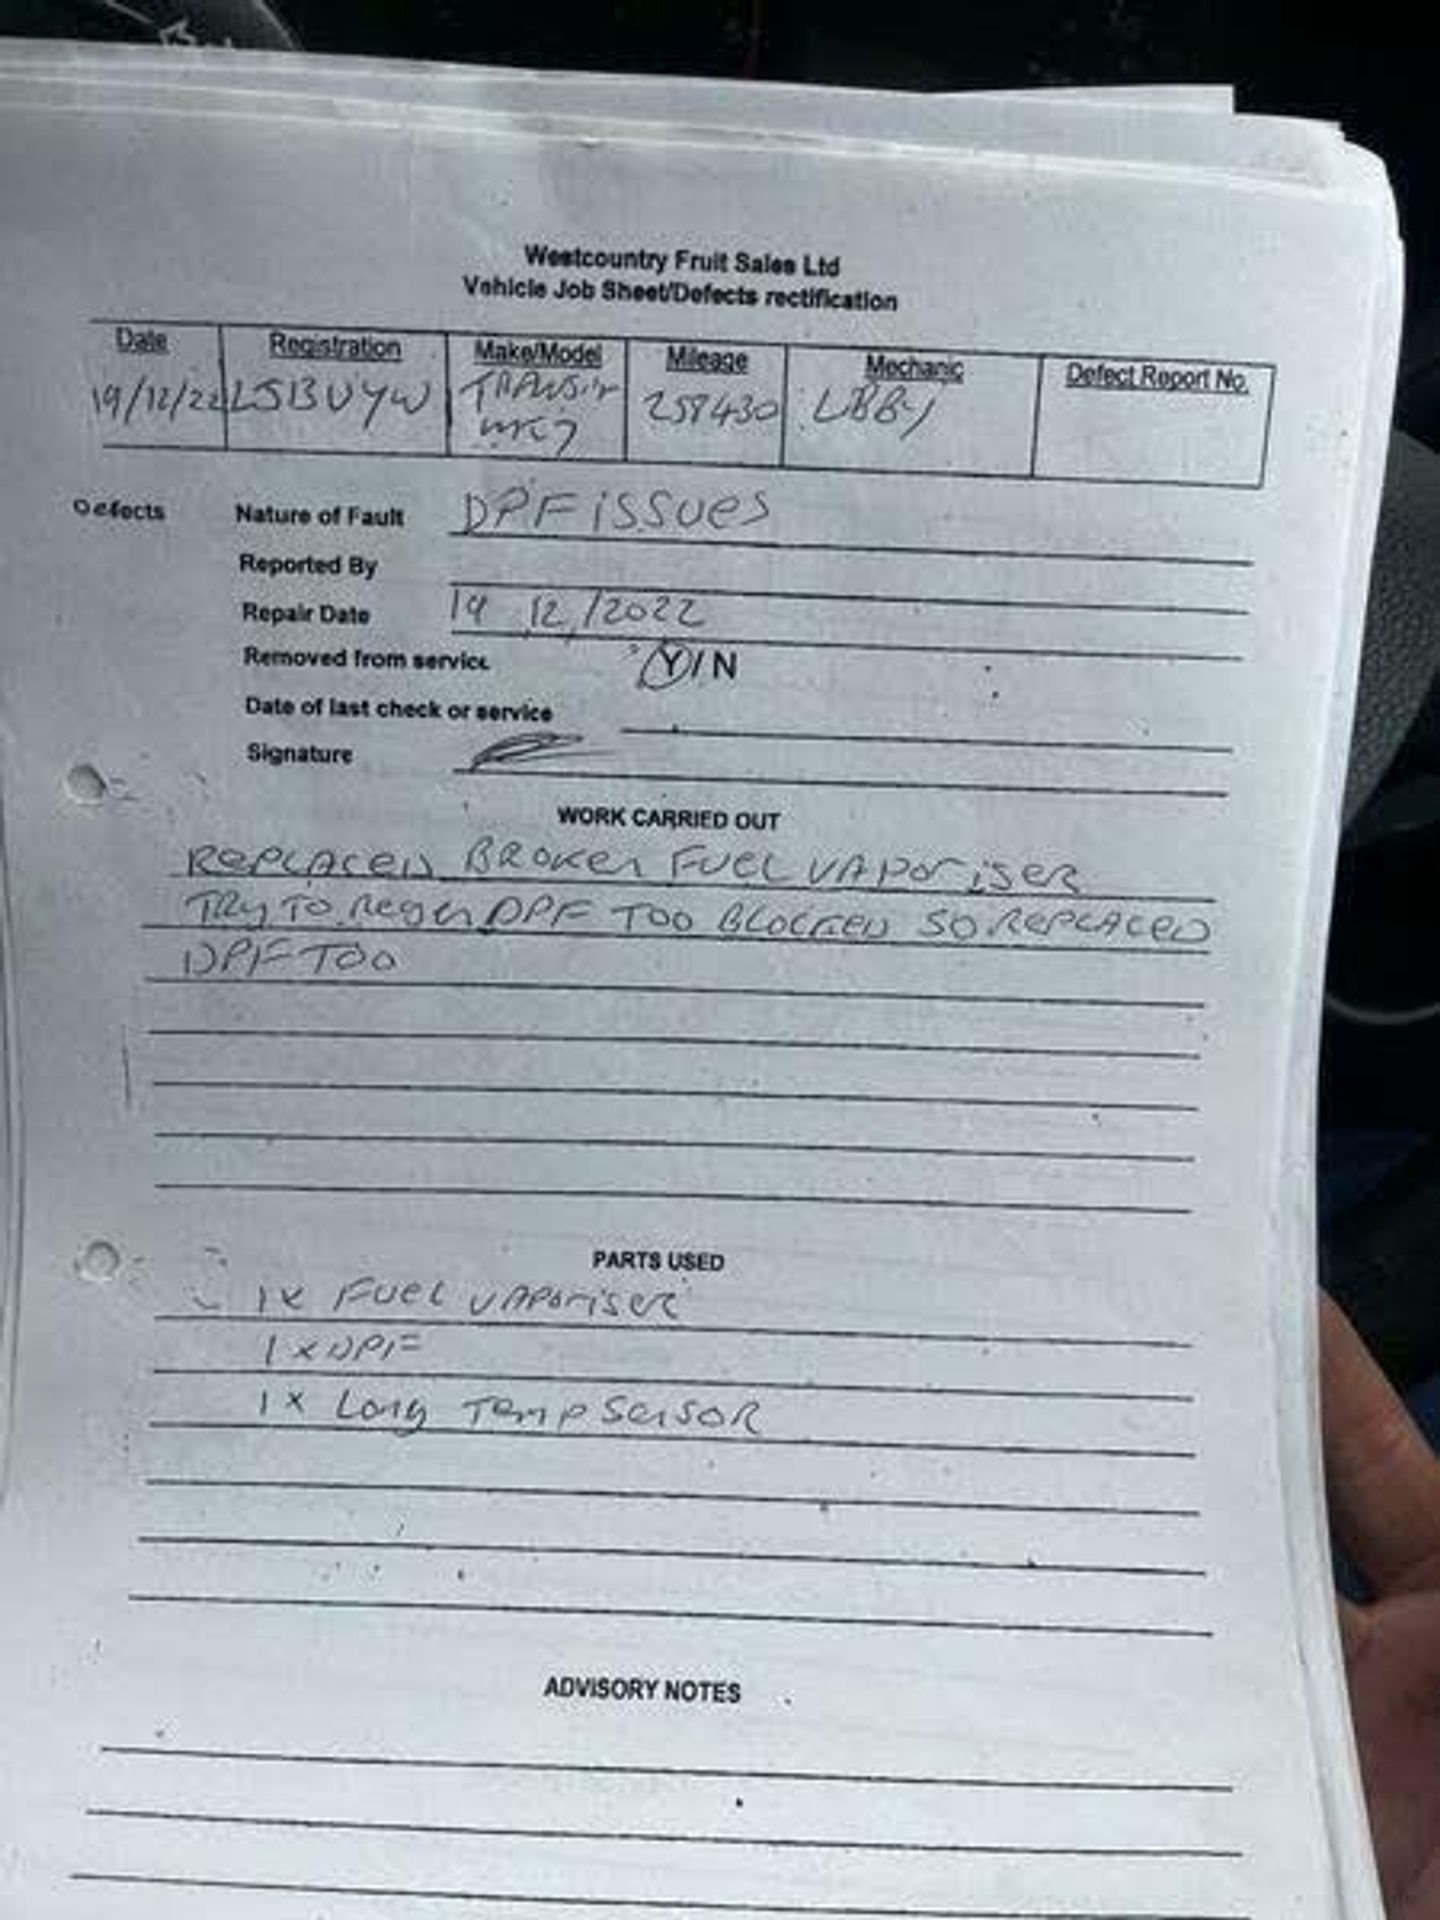 Westcountry Fruit Sales Ltd
Vehicle Job Sheet/Defects rectification
Date Registration Make/Model Mileage Mechanic Defect Report No.
19/12/22 LS13 UYW TRANSIT MK7 258430 LBBY
Defects Nature of Fault DPF issues
Reported By
Repair Date 19 12/2022
Removed from service Y/N
Date of last check or service
Signature
WORK CARRIED OUT
REPLACED BROKEN FUEL VAPORISER
TRY TO Regen DPF TOO BLOCKED SO REPLACED
DPF TOO
PARTS USED
1x FUEL VAPORISER
1x DPF
1x Long Temp Sensor
ADVISORY NOTES